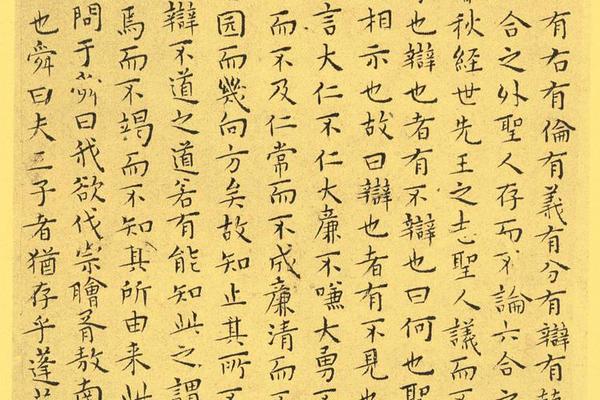 有右有倫有義有分有辯有
合之外聖人存而不論六合之
秋經世先王之志聖人議而不
也辯也者有不辯也曰何也聖
相示也故曰辯也者有不見也
言大仁不仁大廉不嗛大勇不
而不及仁常而不成廉清而不
园而幾向方矣故知止其所不
辯不道之道若有能知此之謂
焉而不竭而不知其所由来此
問于舜曰我欲伐宗膾胥敖南
也舜曰夫三子者猶存乎蓬